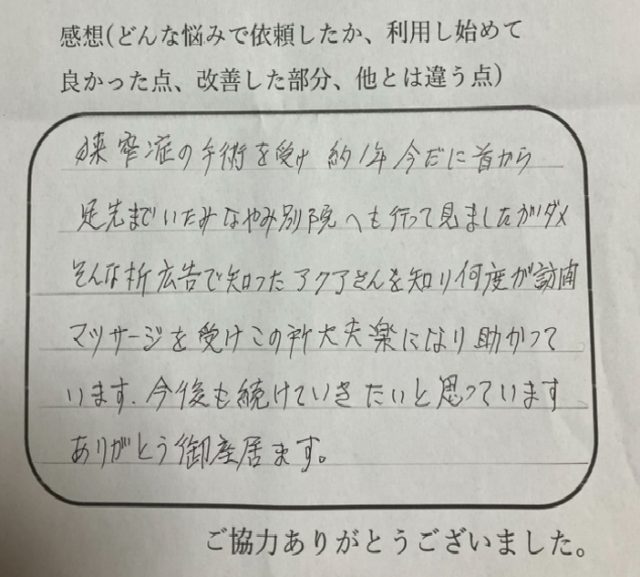 感想(どんな悩みで依頼したか、利用し始めて
良かった点、改善した部分、他とは違う点)
狭窄症の手術を受け 約1年今だに首から
足先までいたみなやみ別院へも行って見ましたがダメ
そんな折広告で知ったアクアさんを知り何度が訪問
マッサージを受けこの所大丈夫楽になり助かって
います.今後も続けていきたいと思っています
ありがとう御座居ます。
ご協力ありがとうございました。